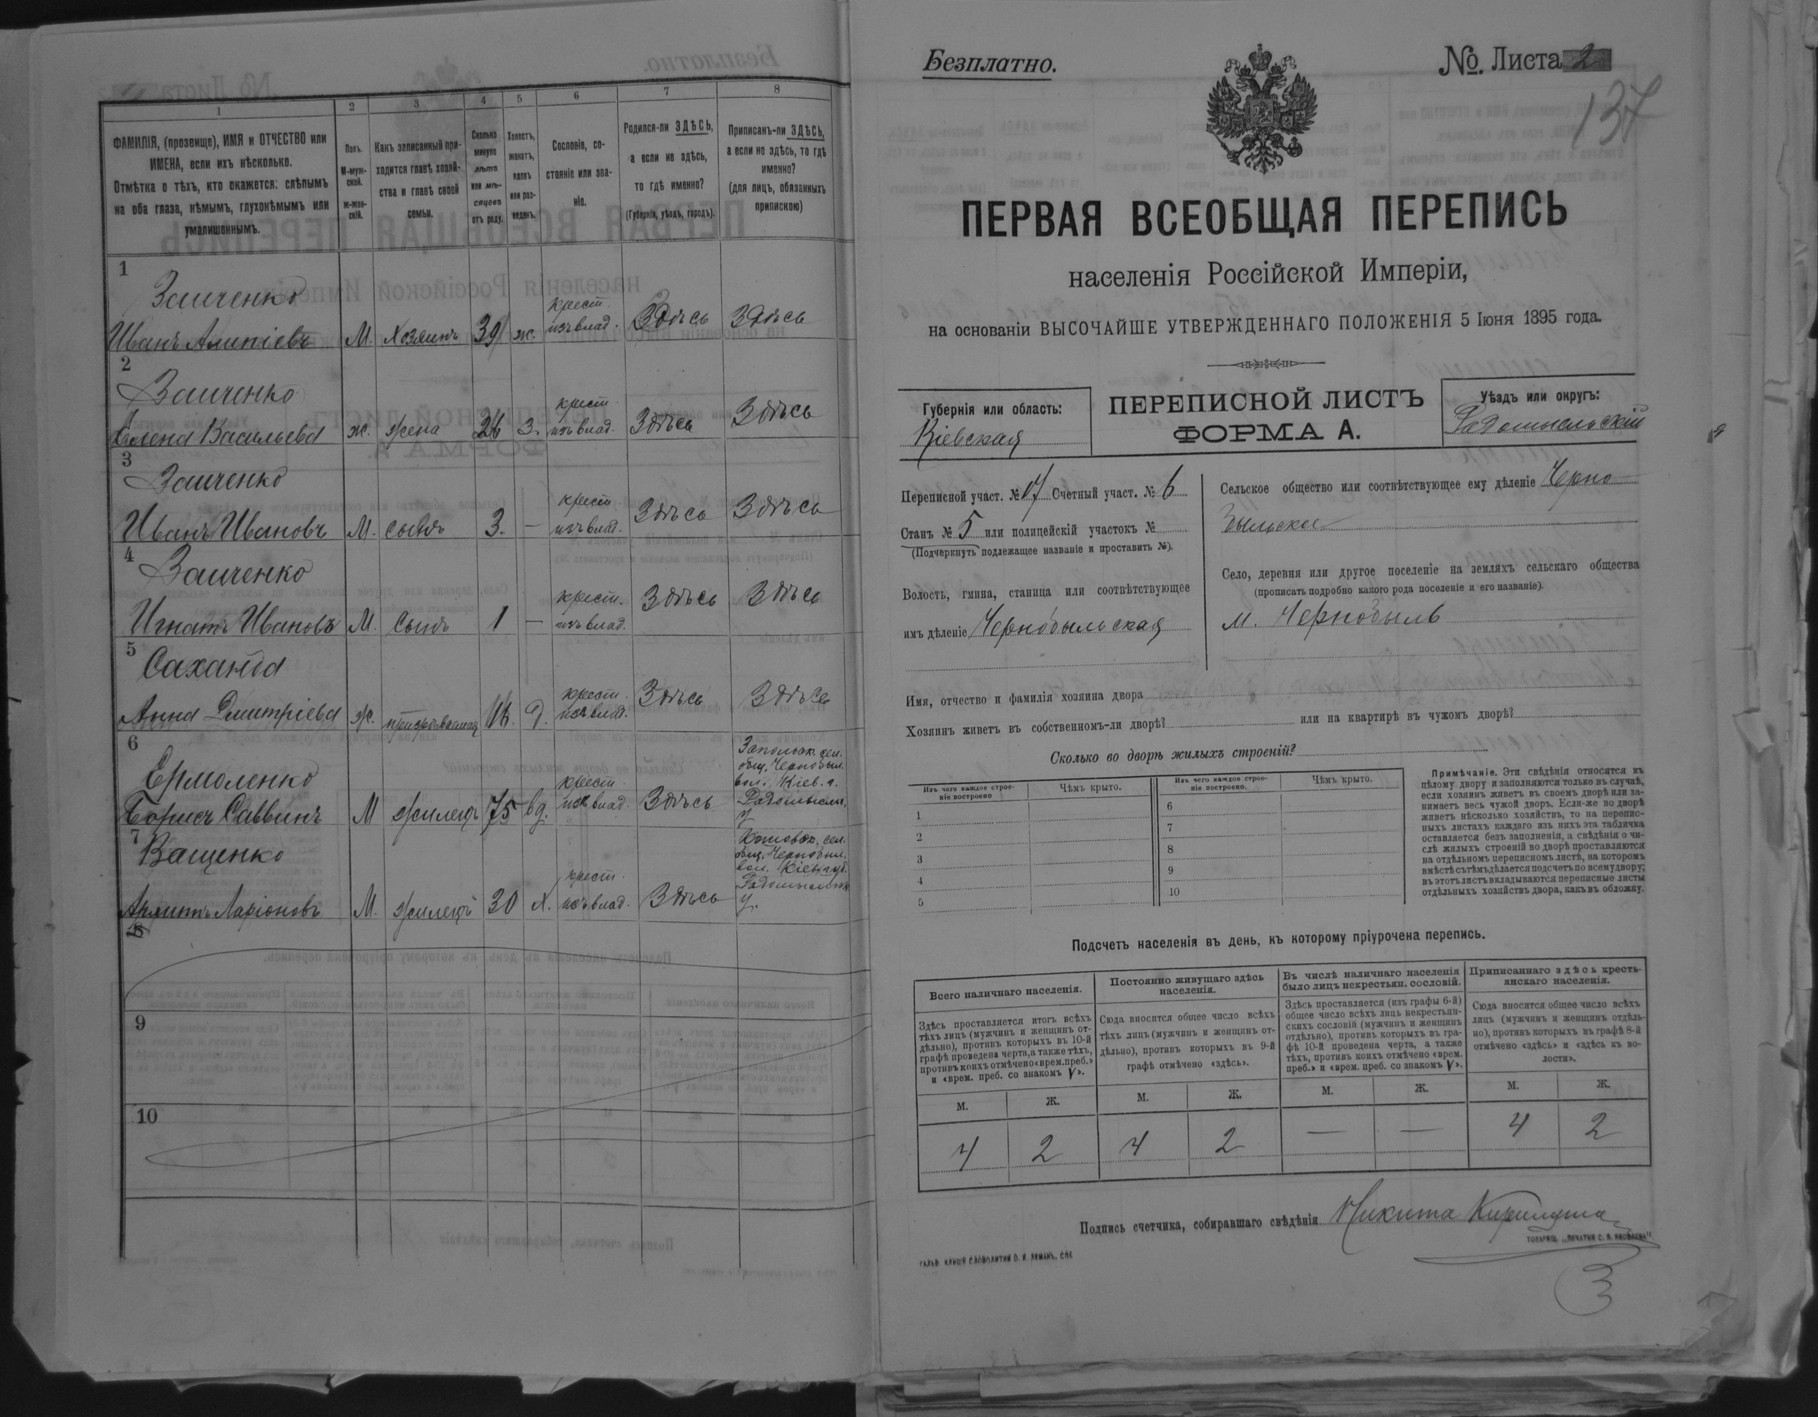 1 2 3 4 5 6 7 8
ФАМИЛІЯ, (прозвище), ИМЯ и ОТЧЕСТВО или
ИМЕНА, если ихъ нѣсколько.
Отмѣтка о тѣхъ, кто окажется: слѣпымъ
на оба глаза, нѣмымъ, глухонѣмымъ или
умалишеннымъ.
Полъ.
М-муж-
ской.
Ж-жен-
скій.
Какъ записанный при-
ходится главѣ хозяй-
ства и главѣ своей
семьи.
Сколько
минуло
лѣтъ
или мѣ-
сяцевъ
отъ роду.
Холостъ,
женатъ,
вдовъ
или раз-
веденъ.
Сословіе, со-
стояніе или зва-
ніе.
Родился-ли ЗДѢСЬ,
а если не здѣсь,
то гдѣ именно?
(Губернія, уѣздъ, городъ).
Приписанъ-ли ЗДѢСЬ,
а если не здѣсь, то гдѣ
именно?
(для лицъ, обязанныхъ
припискою)
1
Заиченко крест.
Иванъ Алипіевъ М. Хозяинъ 39 ж. изъ влад. Здѣсь Здѣсь
2
Заиченко крест
Елена Васильева ж. жена 26 з. изъ влад. Здѣсь Здѣсь
3
Заиченко крест
Иванъ Ивановъ М. сынъ 3. — изъ влад. Здѣсь Здѣсь
4
Заиченко крест.
Игнатъ Ивановъ М. сынъ 1 — изъ влад. Здѣсь Здѣсь
5
крест.
Анна Дмитріева ж. 16. д. изъ влад. Здѣсь Здѣсь
6
Ермоленко крест
Борисъ Саввинъ М жилецъ 75 вд. изъ влад. Здѣсь
сел.
общ. Чернобыл.
вол. Кіев. г.
Радомысл.
у
7
Ващенко крест.
Ларіоновъ М. жилецъ 30 х. изъ влад. Здѣсь
сел.
общ. Чернобыл.
вол. Кіев. губ.
у.
8
9
10
Безплатно.
№ Листа 2
137
ПЕРВАЯ ВСЕОБЩАЯ ПЕРЕПИСЬ
населенія Россійской Имперіи,
на основаніи ВЫСОЧАЙШЕ УТВЕРЖДЕННАГО ПОЛОЖЕНІЯ 5 Іюня 1895 года.
Губернія или область:
Кіевская
ПЕРЕПИСНОЙ ЛИСТЪ
ФОРМА А.
Уѣздъ или округъ:
Радомысльскій
Переписной участ. № 17 Счетный участ. № 6
Станъ № 5 или полицейскій участокъ №
(Подчеркнуть подлежащее названіе и проставить №).
Волость, гмина, станица или соотвѣтствующее
имъ дѣленіе Чернобыльская
Сельское общество или соотвѣтствующее ему дѣленіе Черно
быльское
Село, деревня или другое поселеніе на земляхъ сельскаго общества
(прописать подробно какого рода поселеніе и его названіе).
м. Чернобыль
Имя, отчество и фамилія хозяина двора
Хозяинъ живетъ въ собственномъ-ли дворѣ? или на квартирѣ въ чужомъ дворѣ?
Сколько во дворѣ жилыхъ строеній?
Изъ чего каждое строе-
ніе построено Чѣмъ крыто.
Изъ чего каждое строе-
ніе построено. Чѣмъ крыто.
1 6
2 7
3 8
4 9
5 10
Примѣчаніе. Эти свѣдѣнія относятся къ
цѣлому двору и заполняются только въ случаѣ,
если хозяинъ живетъ въ своемъ дворѣ или за-
нимаетъ весь чужой дворъ. Если-же во дворѣ
живетъ нѣсколько хозяйствъ, то на перепис-
ныхъ листахъ каждаго изъ нихъ эта табличка
оставляется безъ заполненія, а свѣдѣнія о чи-
слѣ жилыхъ строеній во дворѣ проставляются
на отдѣльномъ переписномъ листѣ, на которомъ
вмѣстѣ съ тѣмъ дѣлается подсчетъ по всему двору;
въ этотъ листъ вкладываются переписные листы
отдѣльныхъ хозяйствъ двора, какъ въ обложку.
Подсчетъ населенія въ день, къ которому пріурочена перепись.
Всего наличнаго населенія.
Здѣсь проставляется итогъ всѣхъ
тѣхъ лицъ (мужчинъ и женщинъ от-
дѣльно), противъ которыхъ въ 10-й
графѣ проведена черта, а также тѣхъ,
противъ коихъ отмѣчено «врем. преб.»
и «врем. преб. со знакомъ V».
Постоянно живущаго здѣсь
населенія.
Сюда вносится общее число всѣхъ
тѣхъ лицъ (мужчинъ и женщинъ от-
дѣльно), противъ которыхъ въ 9-й
графѣ отмѣчено «здѣсь».
Въ числѣ наличнаго населенія
было лицъ некрестьян. сословій.
Здѣсь проставляется (изъ графы 6-й)
общее число всѣхъ лицъ некрестьян-
скихъ сословій (мужчинъ и женщинъ
отдѣльно), противъ которыхъ въ гра-
фѣ 10-й проведена черта, а также
тѣхъ, противъ коихъ отмѣчено «врем.
преб.» и «врем. преб. со знакомъ V».
Приписаннаго здѣсь кресть-
янскаго населенія.
Сюда вносится общее число всѣхъ
лицъ (мужчинъ и женщинъ отдѣль-
но), противъ которыхъ въ графѣ 8-й
отмѣчено «здѣсь» и «здѣсь къ во-
лости».
М. Ж. М. Ж. М. Ж. М. Ж.
4 2 4 2 — — 4 2
Подпись счетчика, собиравшаго свѣдѣнія Никита
3